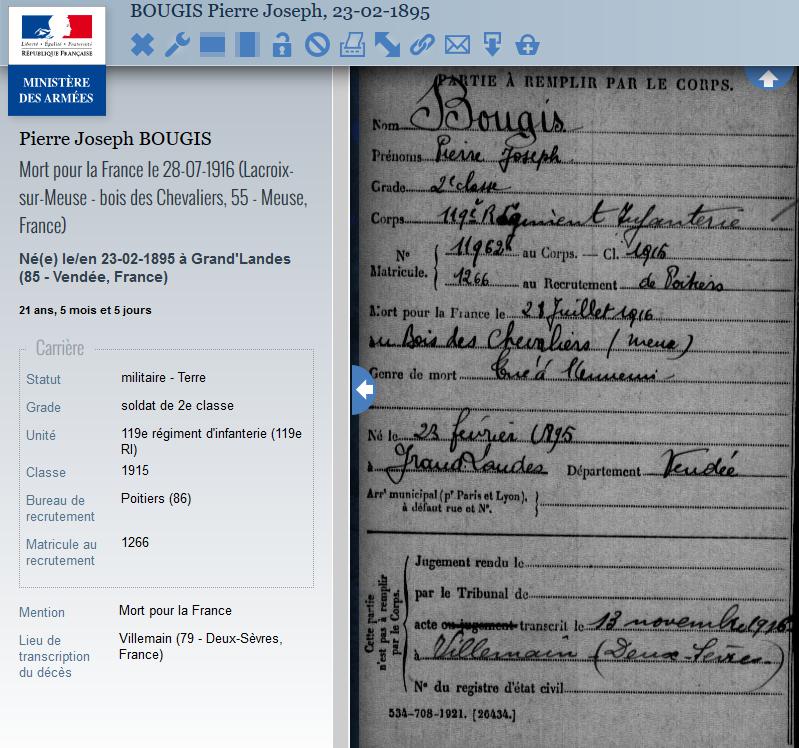 BOUGIS Pierre Joseph, 23-02-1895
Liberté • Égalité • Fraternité
RÉPUBLIQUE FRANÇAISE
MINISTÈRE
DES ARMÉES
Pierre Joseph BOUGIS
Mort pour la France le 28-07-1916 (Lacroix-
sur-Meuse - bois des Chevaliers, 55 - Meuse,
France)
Né(e) le/en 23-02-1895 à Grand'Landes
(85 - Vendée, France)
21 ans, 5 mois et 5 jours
Carrière
Statut militaire - Terre
Grade soldat de 2e classe
Unité 119e régiment d'infanterie (119e
RI)
Classe 1915
Bureau de Poitiers (86)
recrutement
Matricule au 1266
recrutement
Mention Mort pour la France
Lieu de Villemain (79 - Deux-Sèvres,
transcription France)
du décès
PARTIE À REMPLIR PAR LE CORPS.
Nom Bougis
Prénoms Pierre Joseph
Grade 2e classe
Corps 119e Régiment Infanterie
N° 11962 au Corps. — Cl. 1915
Matricule. 1266 au Recrutement de Poitiers
Mort pour la France le 28 Juillet 1916
au Bois des Chevaliers (Meuse)
Genre de mort Tué à l'ennemi
Né le 23 février 1895
à Grand Landes Département Vendée
Arrt municipal (pr Paris et Lyon),
à défaut rue et N°.
Cette partie
n'est pas à remplir
par le Corps.
Jugement rendu le
par le Tribunal de
acte ou jugement transcrit le 13 novembre 1916
à Villemain (Deux-Sèvres)
N° du registre d'état civil
534-708-1921. [26434.]